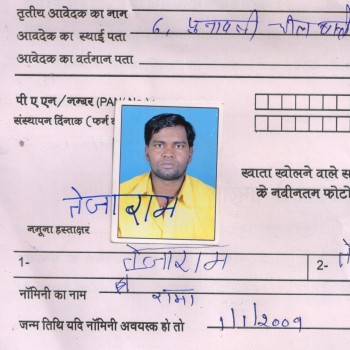 तृतीय आवेदक का नाम
आवेदक का स्थाई पता 6, पुनावली
आवेदक का वर्तमान पता
पी ए एन/नम्बर (PAN
संस्थापन दिनांक (फर्म
खाता खोलने वाले स
के नवीनतम फोटो
तेजाराम
नमूना हस्ताक्षर
1- तेजाराम 2- ते
नॉमिनी का नाम रामा
जन्म तिथि यदि नॉमिनी अवयस्क हो तो 1/1/2009